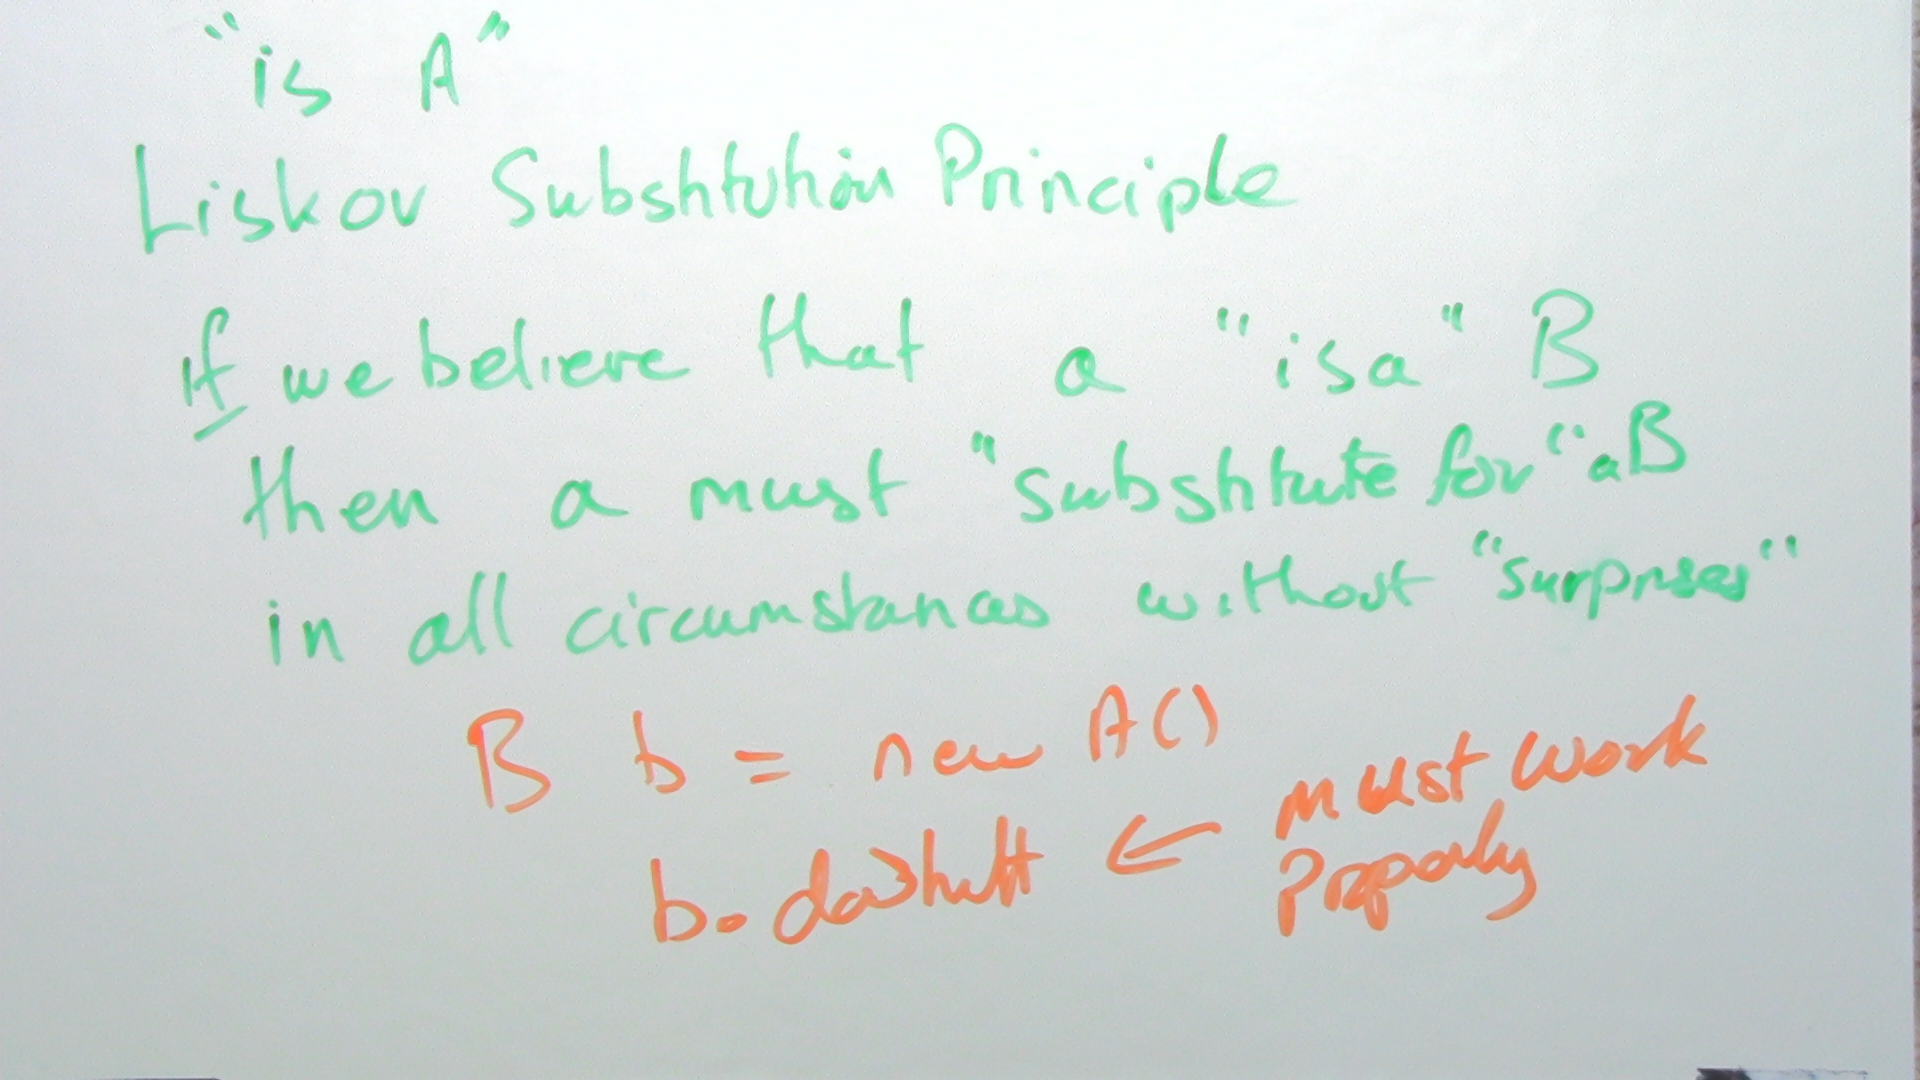 "is A"
Liskov Substitution Principle
if we believe that a "isa" B
then a must "substitute for" a B
in all circumstances without "surprises"
B b = new A()
b.doStuff ← must work
Properly